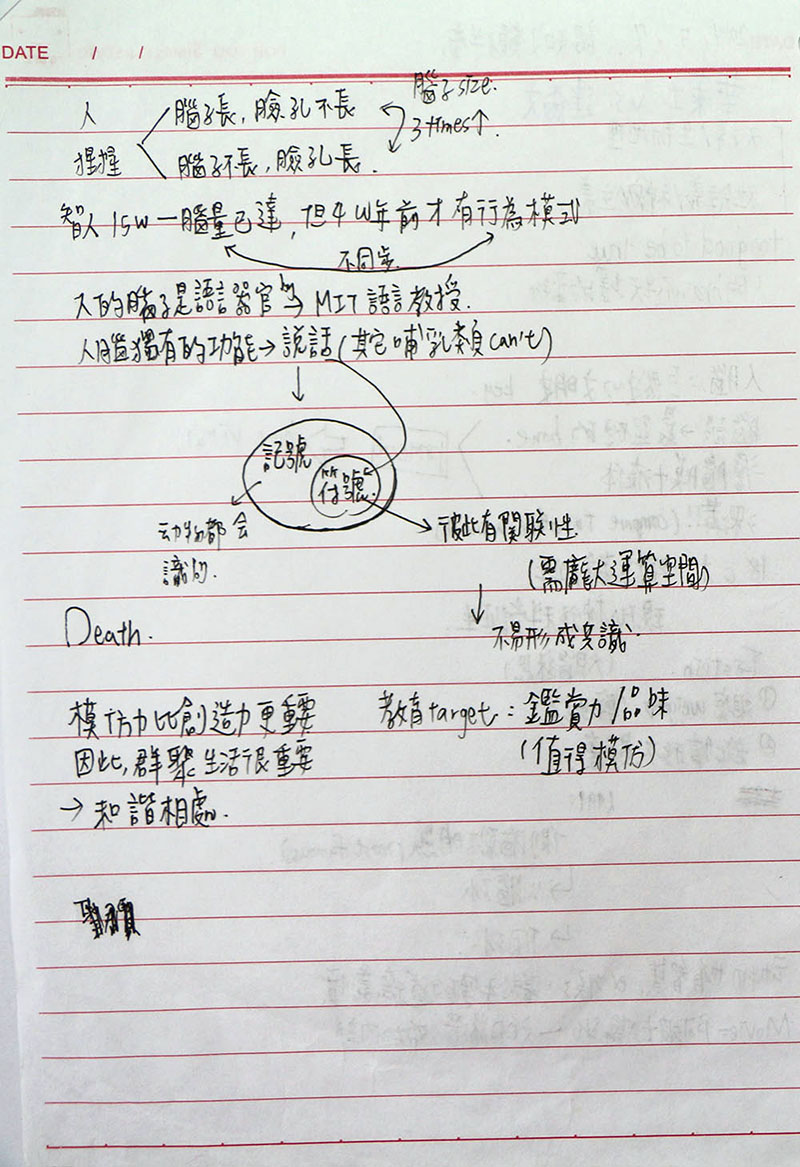 DATE / /
腦子size.
人 腦子長,臉孔不長
3 times↑.
猩猩 腦子不長,臉孔長.
智人 15W—腦量已達,但4W年前才有行為模式
不同步.
大的腦子是語言器官 → MIT 語言教授.
人腦獨有的功能→說話(其它哺乳類can't)
記號
符號
动物都会
識的.
彼此有関联性.
(需龐大運算空間)
Death.
不易形成共識.
模仿力比創造力更重要
教育target:鑑賞力/品味
因此,群聚生活很重要
(值得模仿)
→和諧相處.